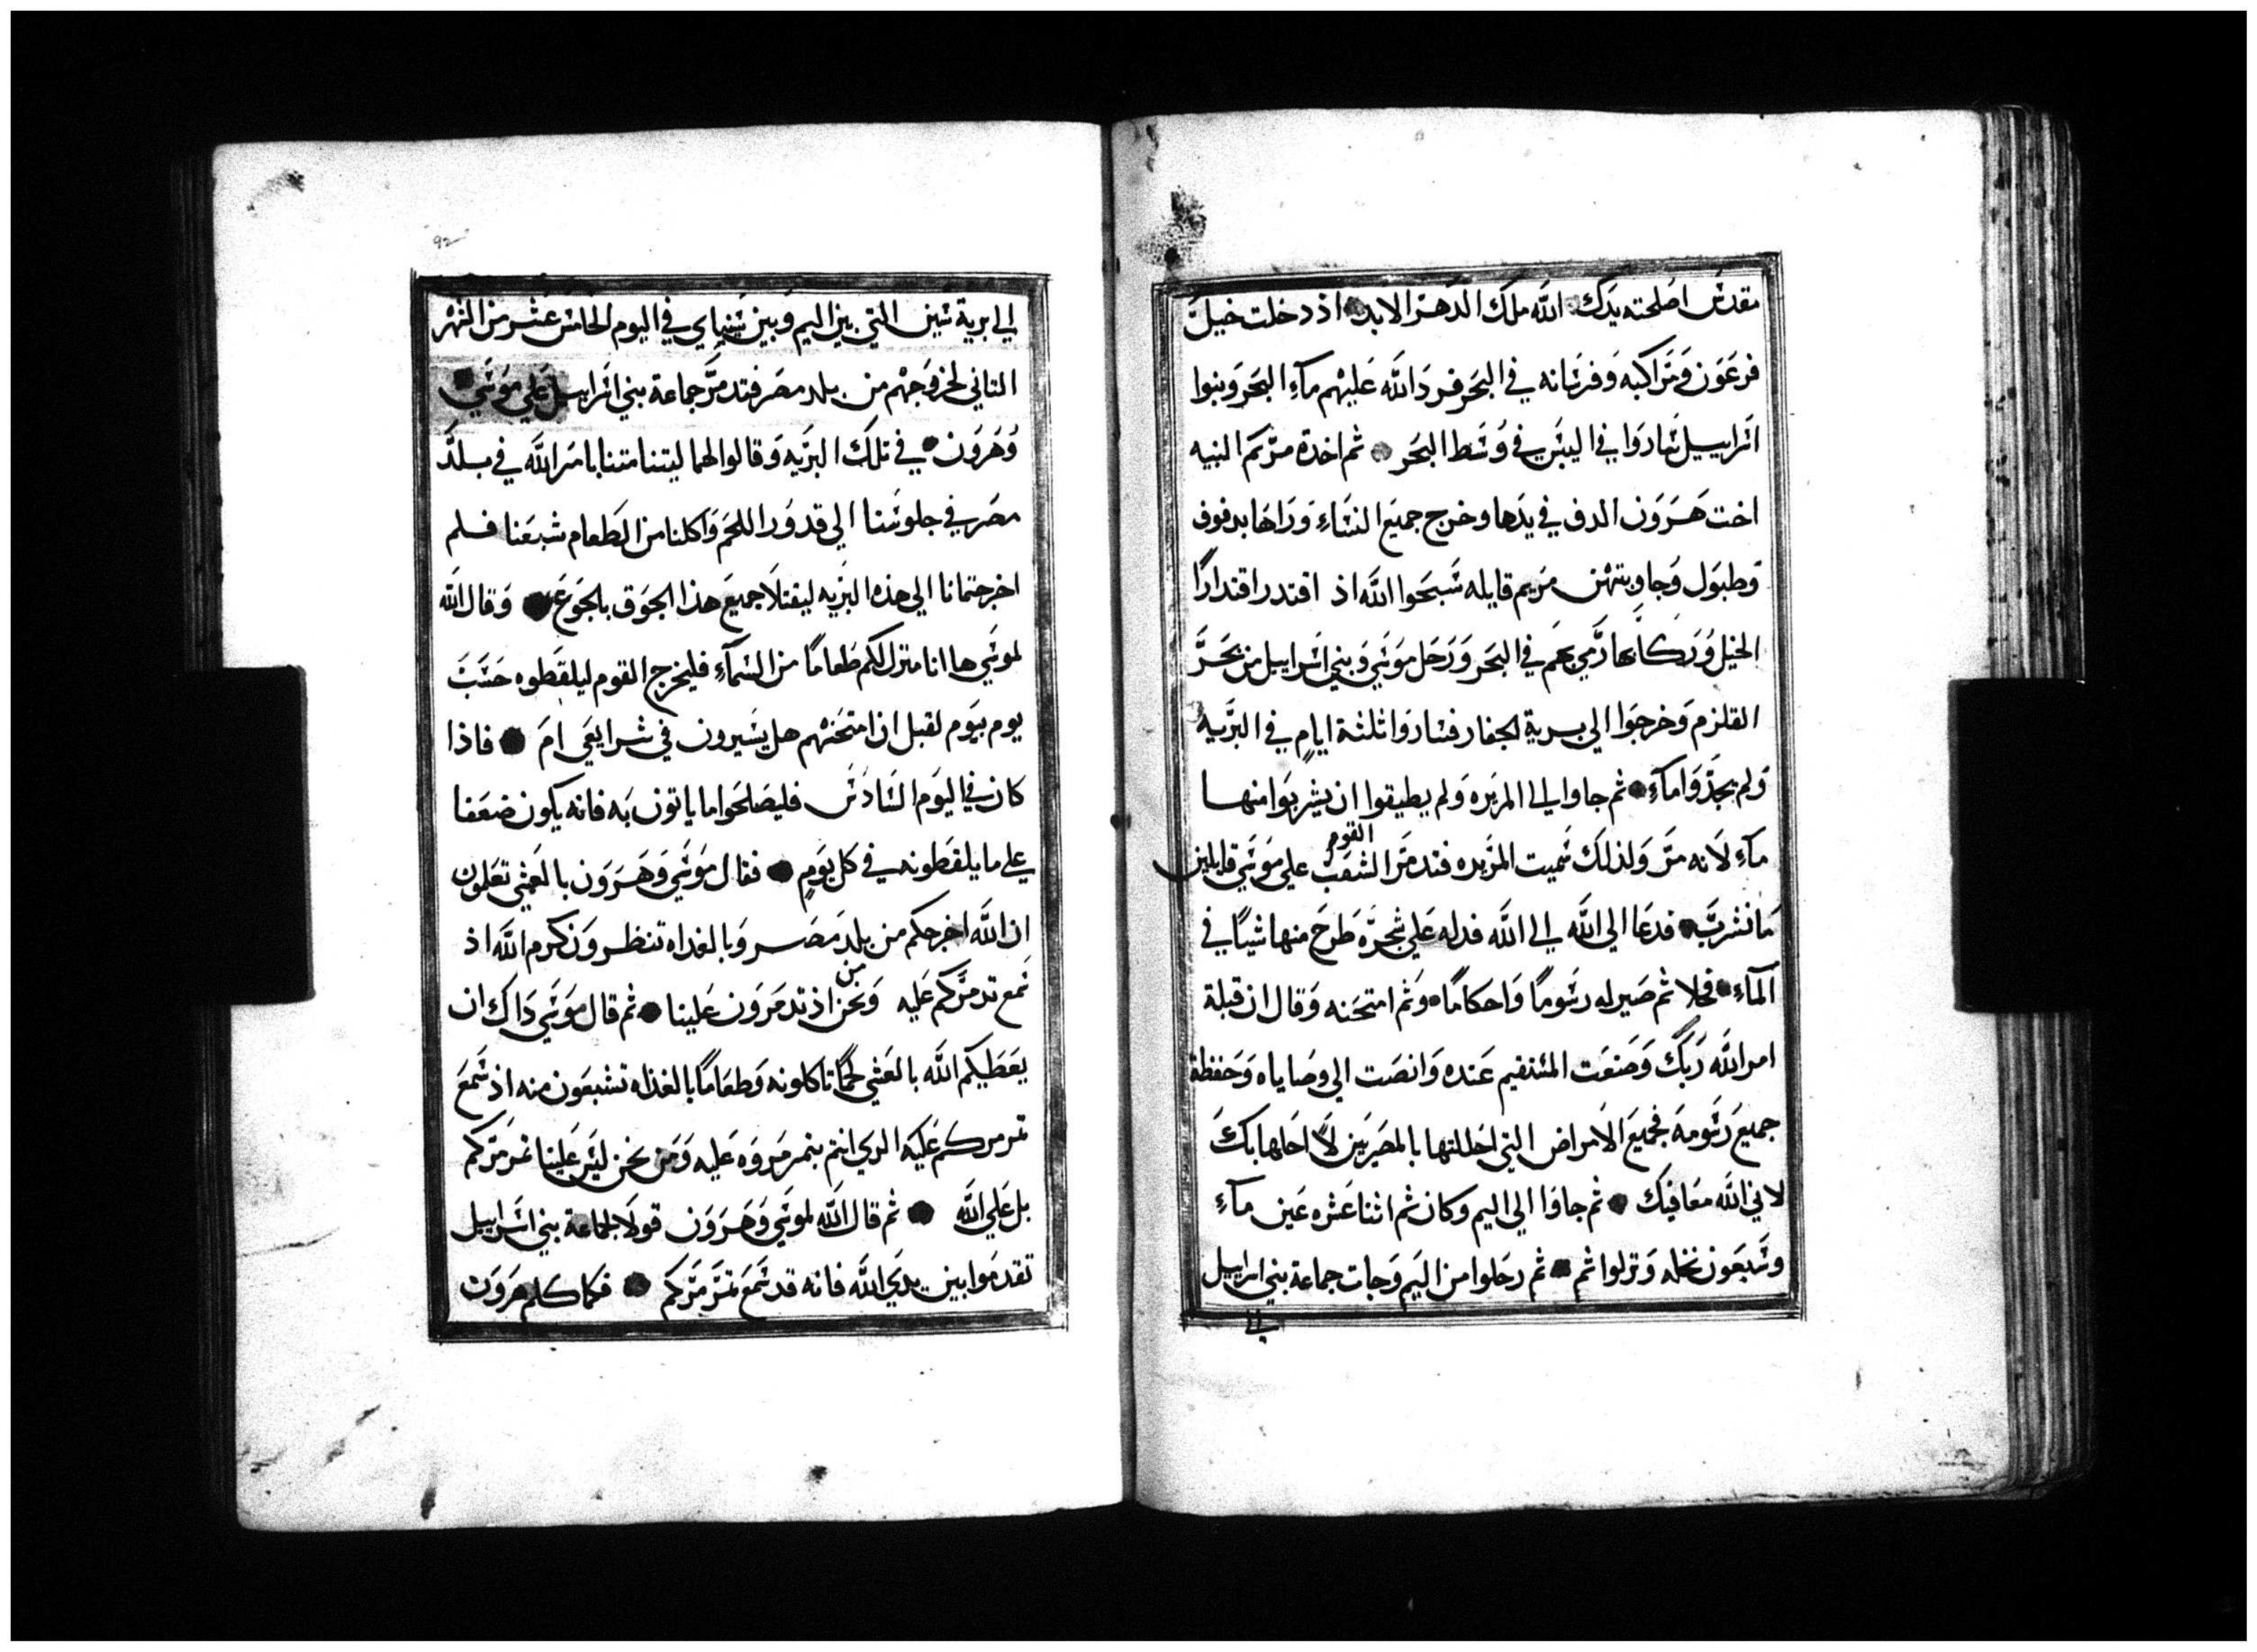 مقدس اصلحته يدك الله ملك الدهر الابد اذ دخلت خيل
فرعون ومراكبه وفرسانه في البحر فرد الله عليهم ماء البحر وبنوا
اسراييل ساروا في اليبس في وسط البحر ثم اخدة مريم النبيه
اخت هرون الدف في يدها وخرج جميع النساء وراها بدفوف
وطبول وجاوبتهن مريم قايله سبحوا الله اذ اقتدر اقتدارا
الخيل وركابها رمي بهم في البحر ورحل موسي وبني اسراييل من بحر
القلزم وخرجوا الي برية الجفار فساروا ثلثة ايام في البريه
ولم يجدوا ماء ثم جاوا الي المريره ولم يطيقوا ان يشربوا منها
القوم
ماء لانه مر ولذلك سميت المريره فتدمر الشعب علي موسي قايلين
ما نشرب فدعا الي الله الي الله فدله علي شجره طرح منها شيا في
الماء فحلا ثم صير له رسوما واحكاما وثم امتحنه وقال ان قبلة
امر الله ربك وصنعت المستقيم عنده وانصت الي وصاياه وحفظة
جميع رسومه فجميع الامراض التي احللتها بالمصريين لا احلها بك
لاني الله معافيك ثم جاوا الي اليم وكان ثم اثنا عشره عين ماء
وسبعون نخله ونزلوا ثم ثم رحلوا من اليم وجات جماعة بني اسراييل
الي
92
الي برية سين التي بين اليم وبين سيناي في اليوم الخامس عشر من الشهر
الثاني لخروجهم من بلد مصر فتدمر جماعة بني اسراييل علي موسي
وهرون في تلك البريه وقالوا لهما ليتنا متنا بامر الله في بلد
مصر في جلوسنا الي قدور اللحم واكلنا من الطعام شبعنا فلم
اخرجتمانا الي هذه البريه ليقتلا جميع هذا الجوق بالجوع وقال الله
لموسي ها انا منزل لكم طعاما من السماء فليخرج القوم ليلقطوه حسب
يوم بيوم لقبل ان امتحنهم هل يسيرون في شرايعي ام فاذا
كان في اليوم السادس فليصلحوا ما ياتون به فانه يكون ضعفا
علي ما يلقطونه في كل يوم فقال موسي وهرون بالعشي تعلمون
ان الله اخرجكم من بلد مصر وبالغداه تنظرون كرم الله اذ
من
سمع تدمركم عليه ونحن اذ تدمرون علينا ثم قال موسي ذاك ان
يعطيكم الله بالعشي لحما تاكلونه وطعاما بالغداه تشبعون منه اذ سمع
تمرمركم عليه الدي انتم بتمرمروه عليه ومن نحن ليس علينا تمرمركم
بل علي الله ثم قال الله لموسي وهرون قولا لجماعة بني اسراييل
تقدموا بين يدي الله فانه قد سمع تمرمركم فكما كلم هرون